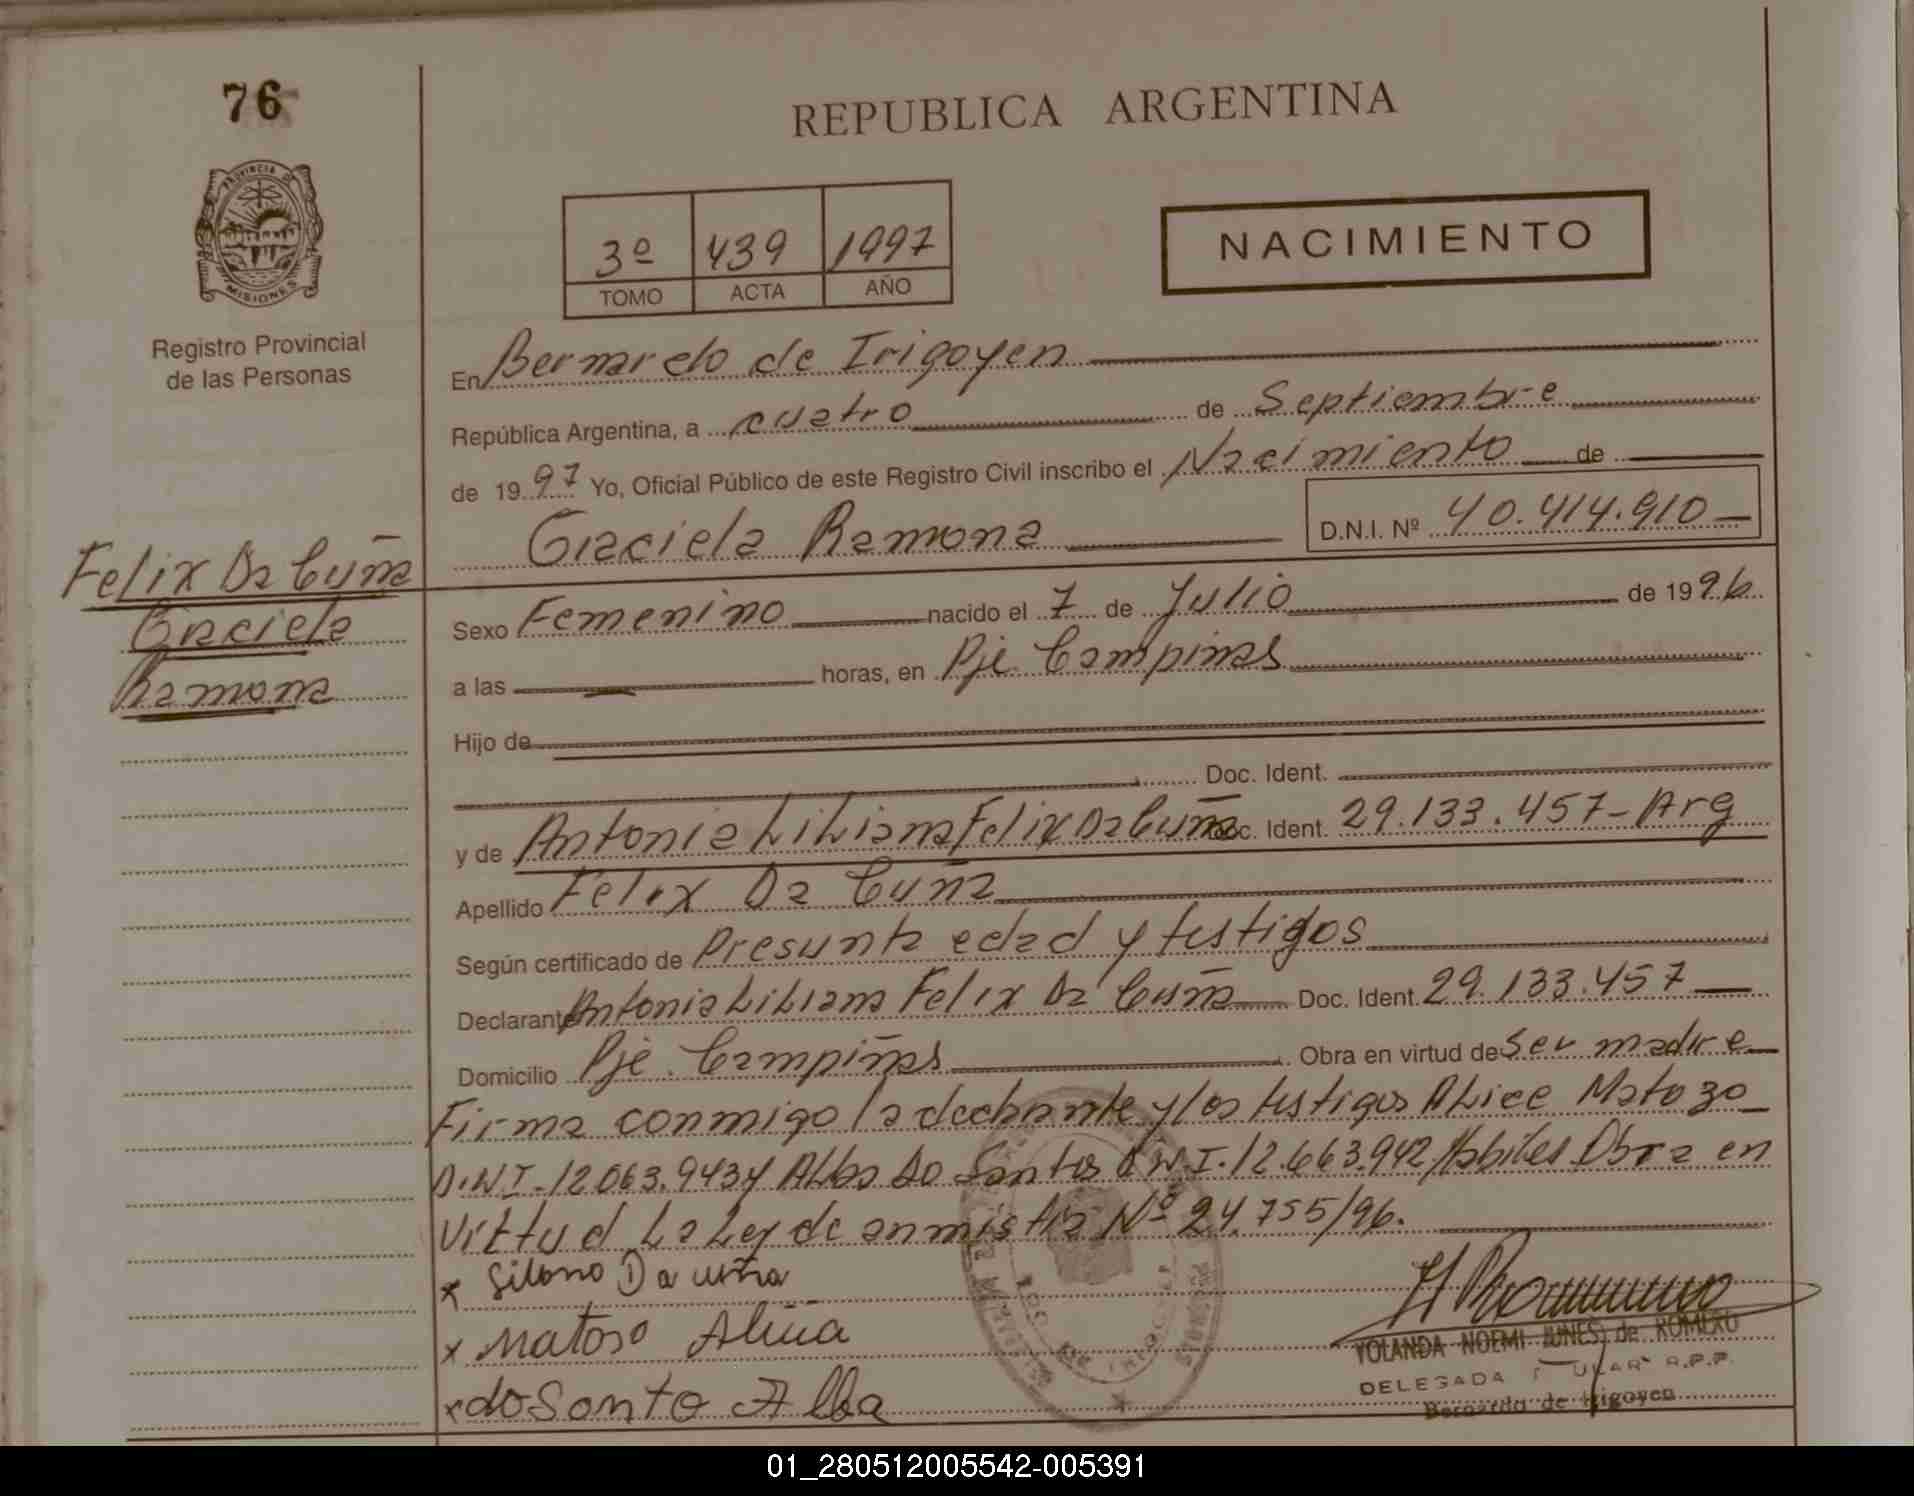 76
REPUBLICA ARGENTINA
PROVINCIA DE
MISIONES
Registro Provincial
de las Personas
3º 439 1997
TOMO ACTA AÑO
NACIMIENTO
En Bernardo de Irigoyen
República Argentina, a cuatro de Septiembre
de 1997 Yo, Oficial Público de este Registro Civil inscribo el Nacimiento de
Graciela Ramona D.N.I. Nº 40.414.910
Felix Da Cuña
Graciela
Ramona
Sexo Femenino nacido el 7 de Julio de 1996
a las horas, en Pje Campiñas
Hijo de
Doc. Ident.
y de Antonia Liliana Felix Da Cuña Doc. Ident. 29.133.457-Arg
Apellido Felix Da Cuña
Según certificado de Presunta edad y testigos
Declarante Antonia Liliana Felix Da Cuña Doc. Ident. 29.133.457
Domicilio Pje. Campiñas Obra en virtud de Ser madre
Firma conmigo la declarante y los testigos Alice Matozo
D.N.I. 12.063.943 y Alba Do Santos D.N.I. 12.663.942 Habiles Obra en
Virtud La Ley de anmistia Nº 24.755/96.
x Da cuña
x Matoso
x do Santo Alba
YOLANDA NOEMI de ROMERO
DELEGADA TITULAR R.P.P.
Bernardo de Irigoyen
01_280512005542-005391